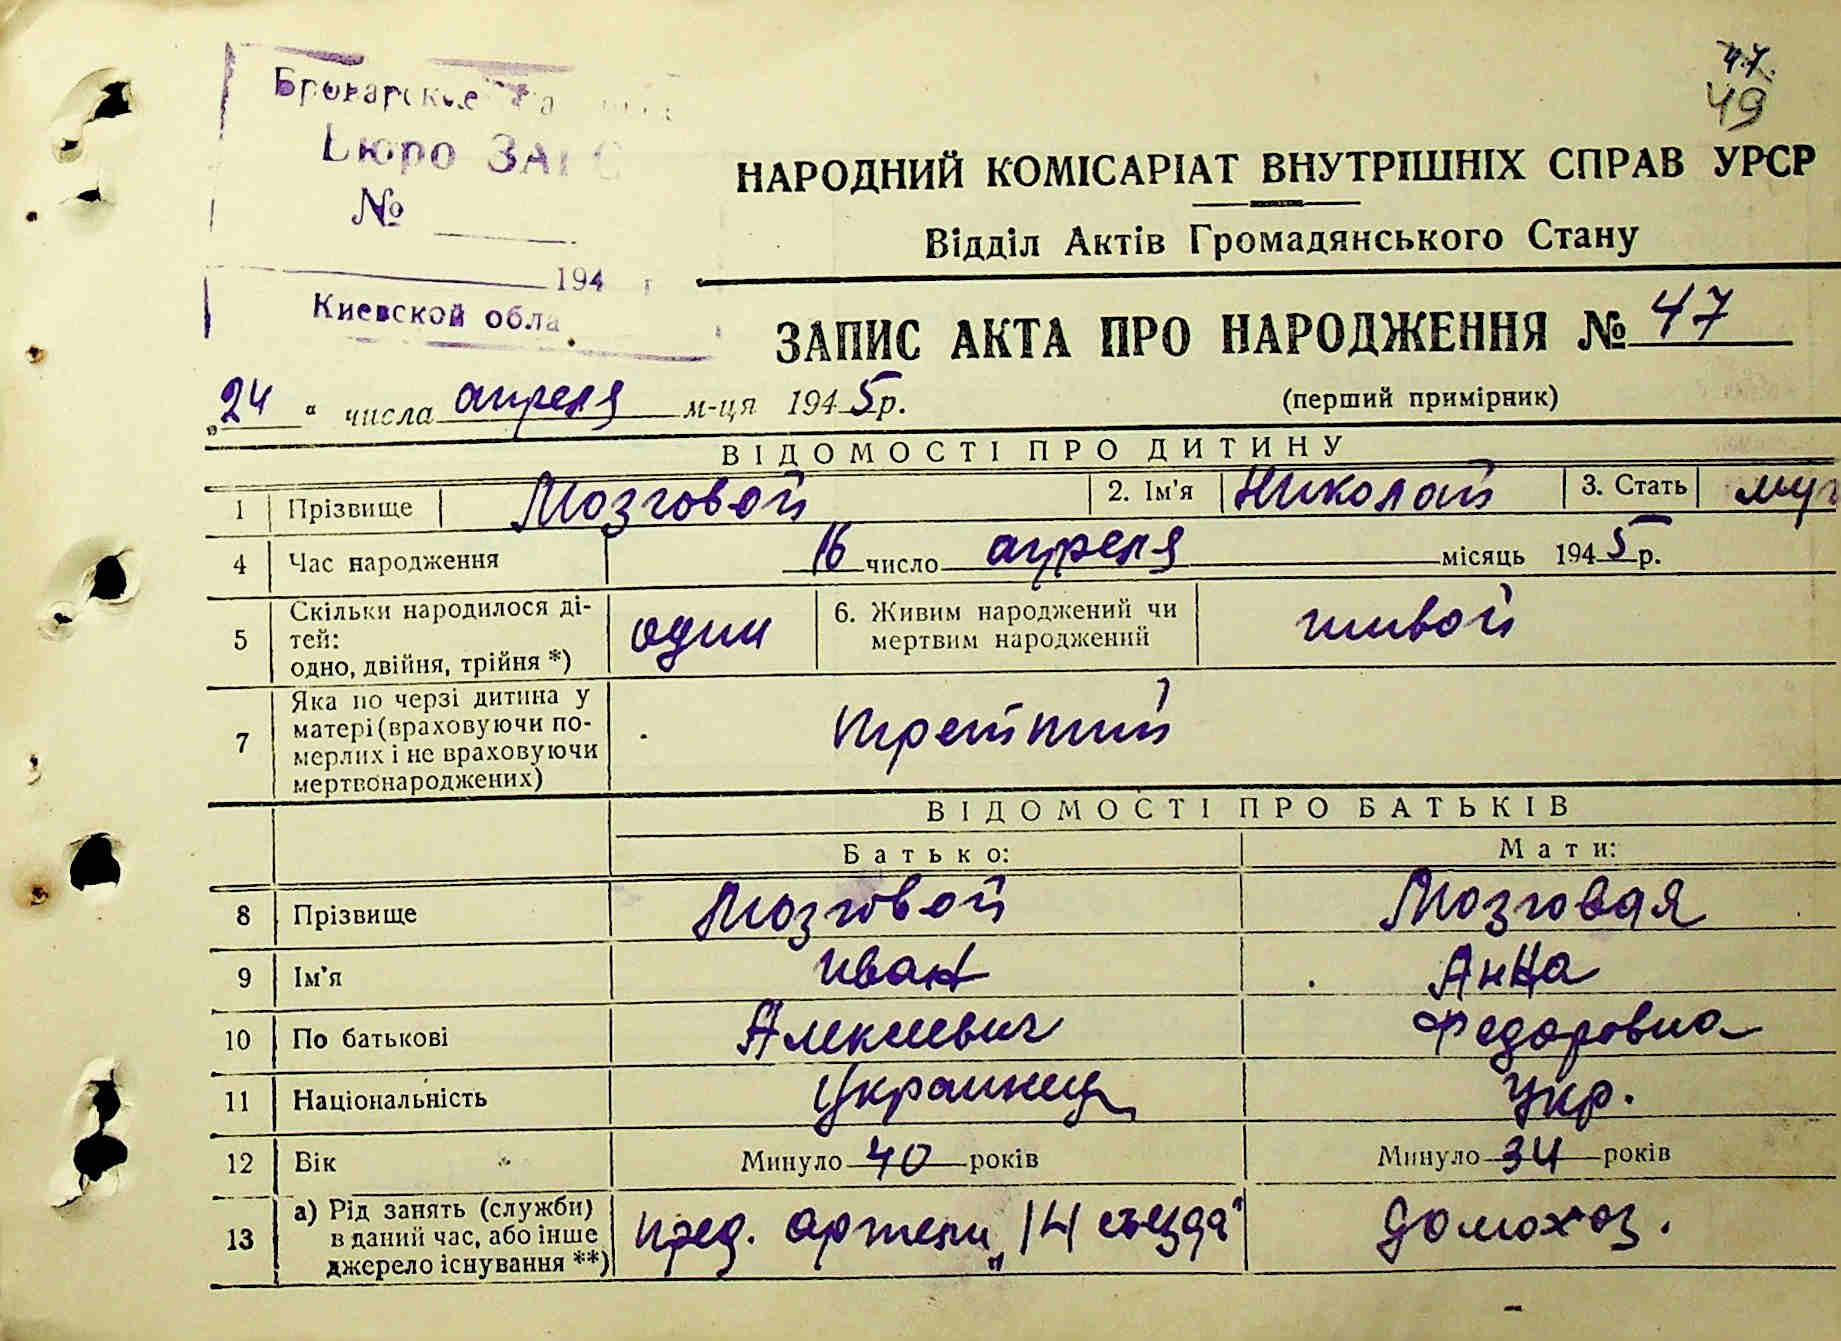 47.
49
Броварское
Бюро ЗАГС
№
194 г
Киевской обла
НАРОДНИЙ КОМІСАРІАТ ВНУТРІШНІХ СПРАВ УРСР
Відділ Актів Громадянського Стану
ЗАПИС АКТА ПРО НАРОДЖЕННЯ № 47
„24“ числа апреля м-ця 1945 р.
(перший примірник)
ВІДОМОСТІ ПРО ДИТИНУ
1 Прізвище Мозговой 2. Ім'я Николай 3. Стать муж
4 Час народження 16 число апреля місяць 1945 р.
5 Скільки народилося ді-
тей:
одно, двійня, трійня *) один
6. Живим народжений чи
мертвим народжений живой
7 Яка по черзі дитина у
матері (враховуючи по-
мерлих і не враховуючи
мертвонароджених) третий
ВІДОМОСТІ ПРО БАТЬКІВ
Батько: Мати:
8 Прізвище Мозговой Мозговая
9 Ім'я Иван Анна
10 По батькові Алексеевич Федоровна
11 Національність Украинец Укр.
12 Вік Минуло 40 років Минуло 34 років
13 а) Рід занять (служби)
в даний час, або інше
джерело існування **)
пред. артели „14 съезда“ домохоз.